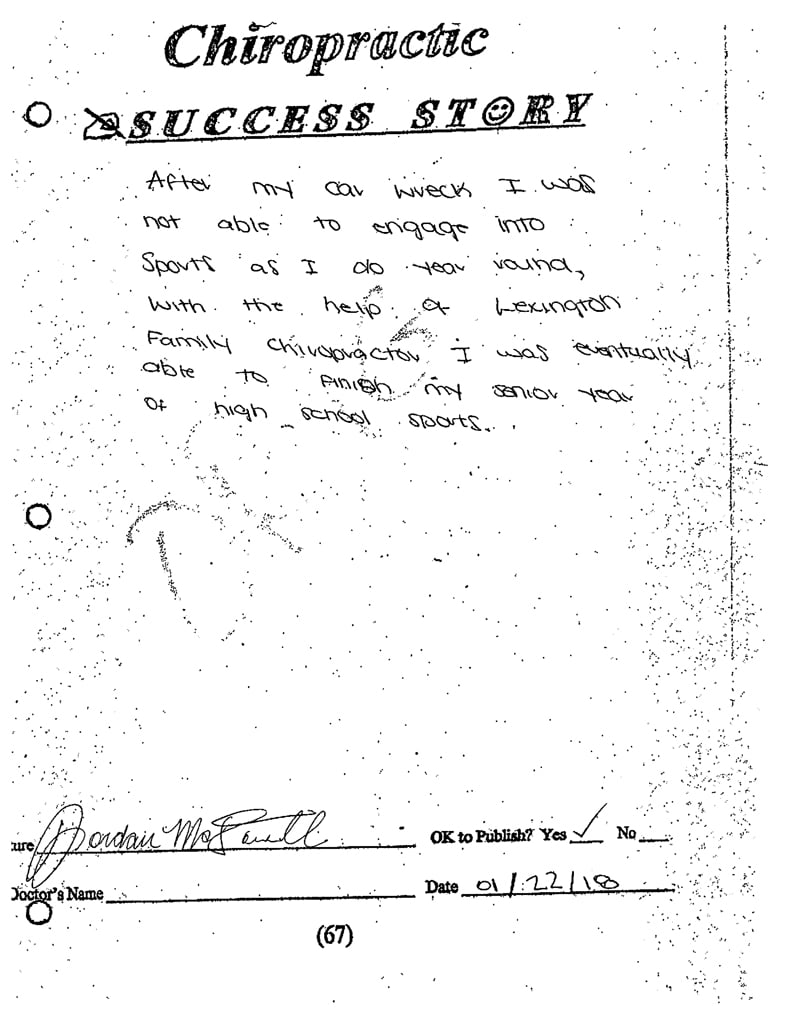 Chiropractic
SUCCESS STORY
After my car wreck I was
not able to engage into
Sports as I do year round,
With the help of Lexington
Family Chiropractor I was eventually
able to finish my senior year
of high school sports.
ure Jordan
OK to Publish? Yes ✓ No
Doctor's Name
Date 01/22/18
(67)